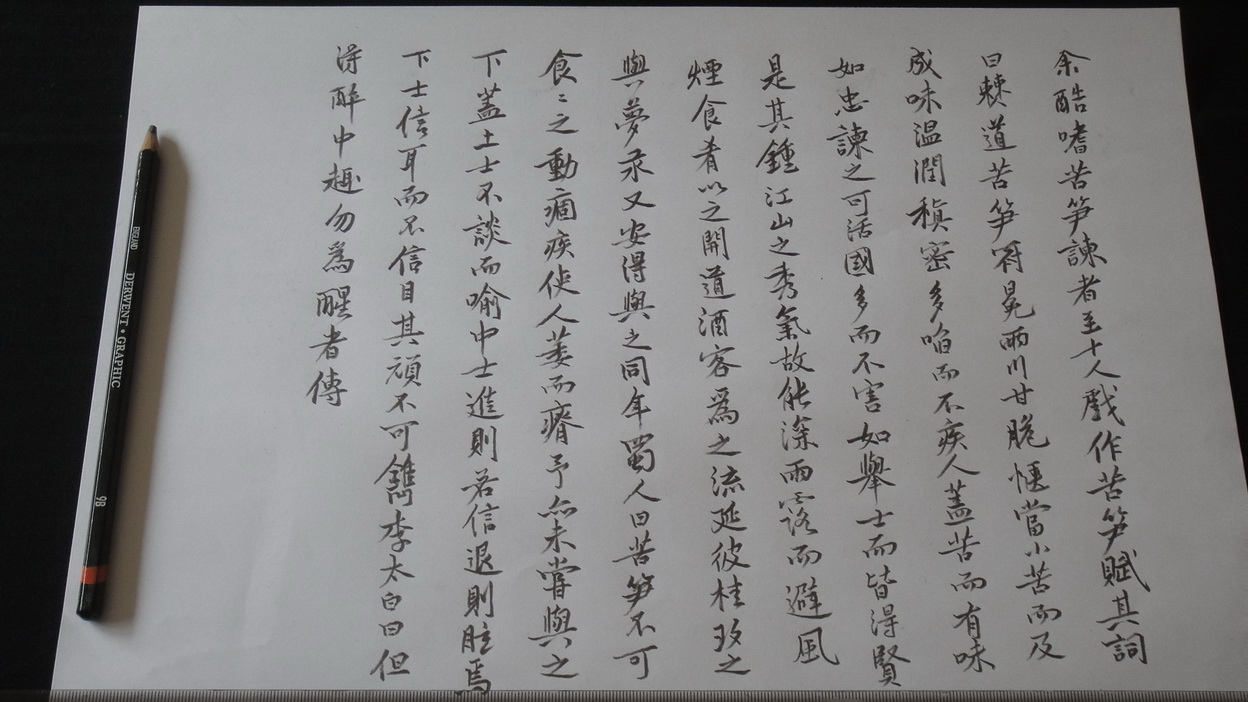 余酷嗜苦笋諫者至十人戲作苦笋賦其詞
曰棘道苦笋冠冕兩川甘脆愜當小苦而及
成味温潤稹密多啗而不疾人蓋苦而有味
如忠諫之可活國多而不害如舉士而皆得賢
是其鍾江山之秀氣故能深雨露而避風
煙食肴以之開道酒客為之流延彼桂玫之
與夢永又安得與之同年蜀人曰苦笋不可
食〻之動痼疾使人萎而瘠予亦未嘗與之
下蓋土士不談而喻中士進則若信退則眩焉
下士信耳而不信目其頑不可鐫李太白曰但
得醉中趣勿為醒者傳
ENGLAND DERWENT • GRAPHIC 9B